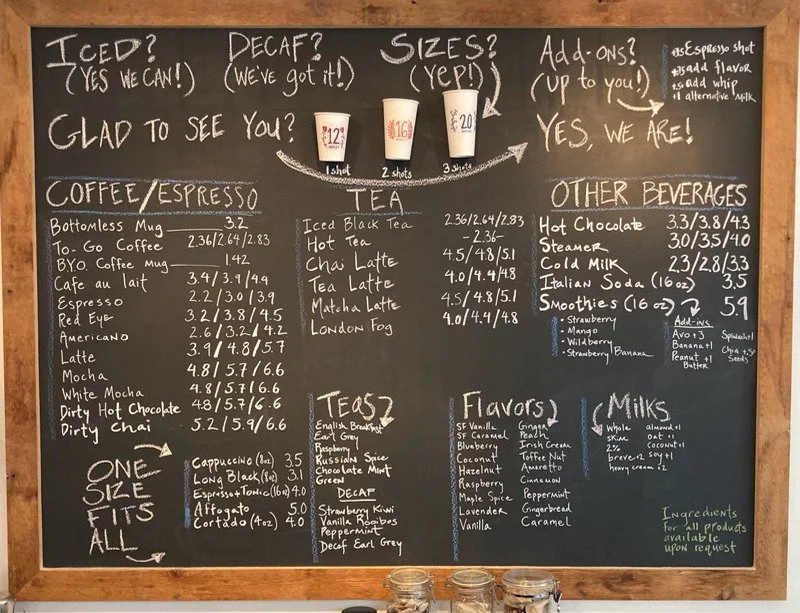 ICED?
(YES WE CAN!)
DECAF?
(WE'VE got it!)
SIZES?
(YEP!)
Add-ons?
(up to you!)
+.75 Espresso shot
+.75 add flavor
+.50 add whip
+1 alternative milk
GLAD TO SEE YOU?
YES, WE ARE!
12
16
20
1 shot
2 shots
3 shots
COFFEE/ESPRESSO
Bottomless Mug 3.2
To-Go Coffee 2.36/2.64/2.83
B.Y.O. Coffee Mug 1.42
Cafe au lait 3.4/3.9/4.4
Espresso 2.2/3.0/3.9
Red Eye 3.2/3.8/4.5
Americano 2.6/3.2/4.2
Latte 3.9/4.8/5.7
Mocha 4.8/5.7/6.6
White Mocha 4.8/5.7/6.6
Dirty Hot Chocolate 4.8/5.7/6.6
Dirty Chai 5.2/5.9/6.6
ONE
SIZE
FITS
ALL
Cappuccino (8oz) 3.5
Long Black (8oz) 3.1
Espresso+Tonic (16oz) 4.0
Affogato 5.0
Cortado (4oz) 4.0
TEA
Iced Black Tea 2.36/2.64/2.83
Hot Tea -2.36-
Chai Latte 4.5/4.8/5.1
Tea Latte 4.0/4.4/4.8
Matcha Latte 4.5/4.8/5.1
London Fog 4.0/4.4/4.8
TEAS
English Breakfast
Earl Grey
Raspberry
Russian Spice
Chocolate Mint
Green
DECAF
Strawberry Kiwi
Vanilla Rooibos
Peppermint
Decaf Earl Grey
OTHER BEVERAGES
Hot Chocolate 3.3/3.8/4.3
Steamer 3.0/3.5/4.0
Cold Milk 2.3/2.8/3.3
Italian Soda (16 oz) 3.5
Smoothies (16 oz) 5.9
• Strawberry
• Mango
• Wildberry
• Strawberry Banana
Add-ins
Avo +3
Banana +1
Peanut +1
Butter
Spinach +1
Chia +.5
Seeds
Flavors
SF Vanilla
SF Caramel
Blueberry
Coconut
Hazelnut
Raspberry
Maple Spice
Lavender
Vanilla
Ginger
Peach
Irish Cream
Toffee Nut
Amaretto
Cinnamon
Peppermint
Gingerbread
Caramel
Milks
Whole
skim
2%
breve +2
almond +1
oat +1
coconut +1
soy +1
heavy cream +2
Ingredients
for all products
available
upon request